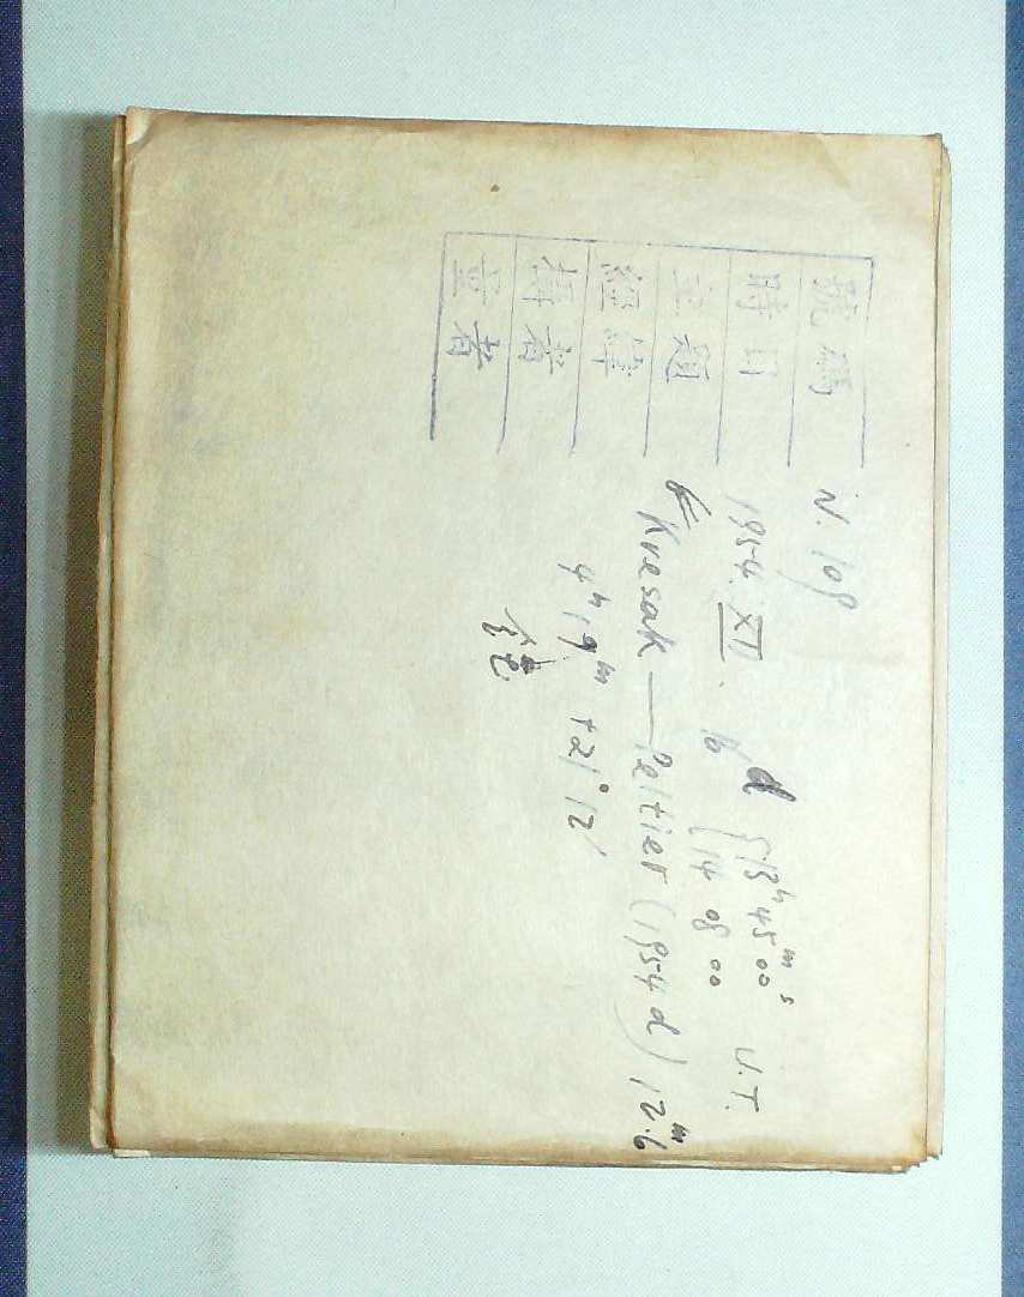 號碼 N. 108
時日 1954. XII. 16d { 13h 45m 00s U.T.
14 08 00
主題 Kresak — Peltier (1954 d) 12m.6
經緯 4h 19m +21° 12′
攝者
量者